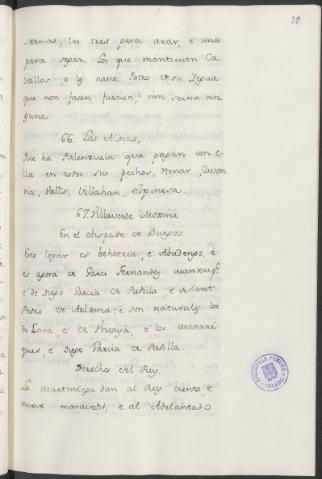 39.
sernas, las tres para arar, e una
para segar los que mantienen Ca-
vallos o q.e nasce Potro de su Yegua
que non facen furcion, nin serna nin-
guna.
66. Las Aldeas,
Que ha Palenzuela que pagan con e-
lla en todos sus pechos, Henar,
na, Valles, Villahan, Espinosa.
67. Villaverde Moxina
En el obispado de Burgos.
Este logar es behetria, e Abadengo, e
es agora de Garci Fernandez Manrriq.e
e de Diego Garcia de Padilla, e de Sant
Pedro de Arlanza, e son naturales los
de Lara, e de Vizcaya, e los Manrri-
ques, e Diego Garcia de Padilla.
Derechos del Rey.
La martiniega dan al Rey ciento, e
nueve maravedis, e al Adelantado
BIBLIOTECA PUBLICA
TOLEDO